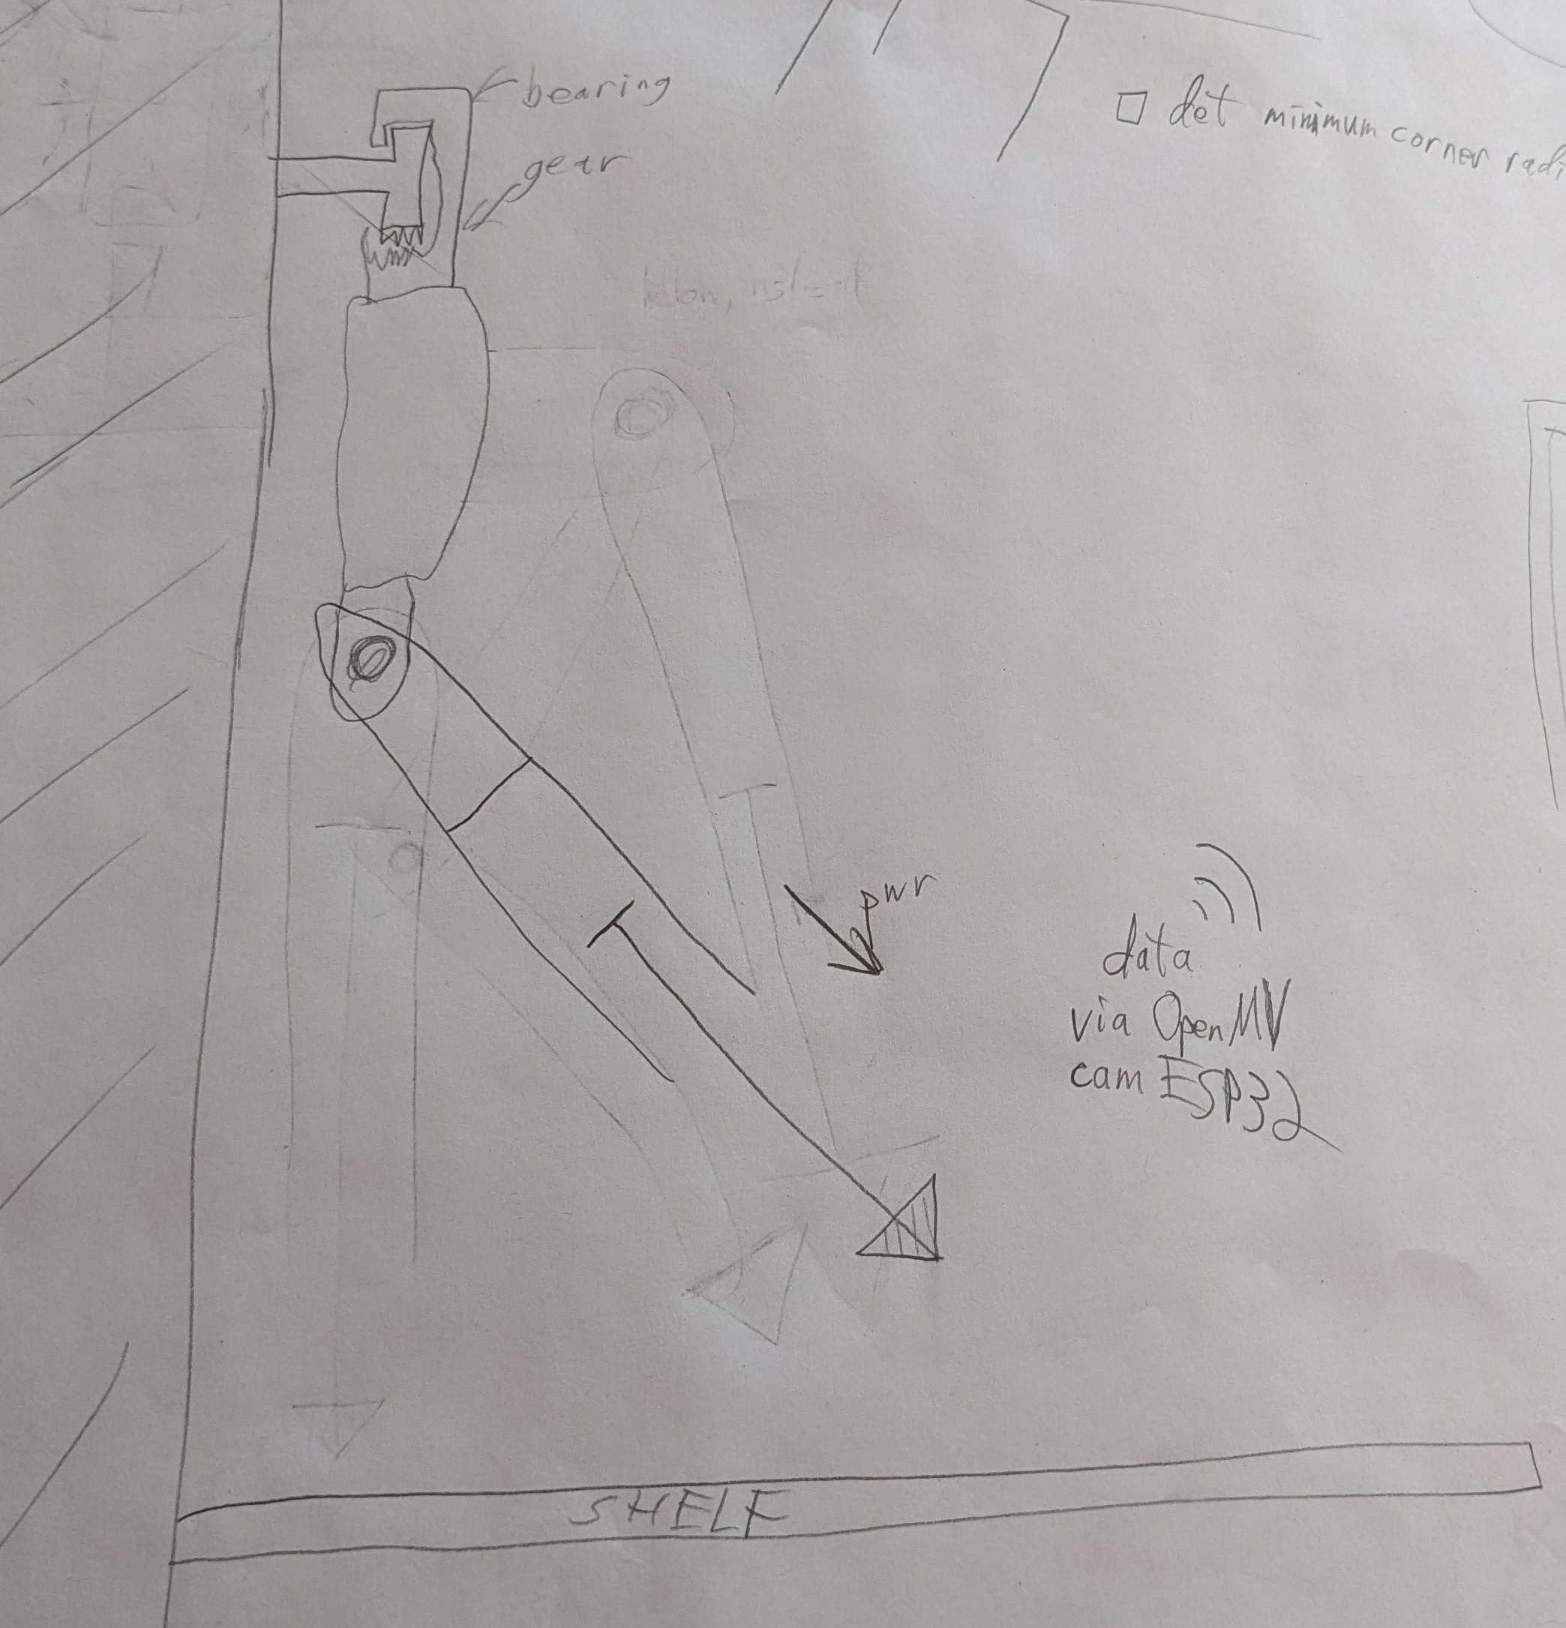 bearing
gear
det minimum corner
pwr
data
via OpenMV
cam ESP32
SHELF